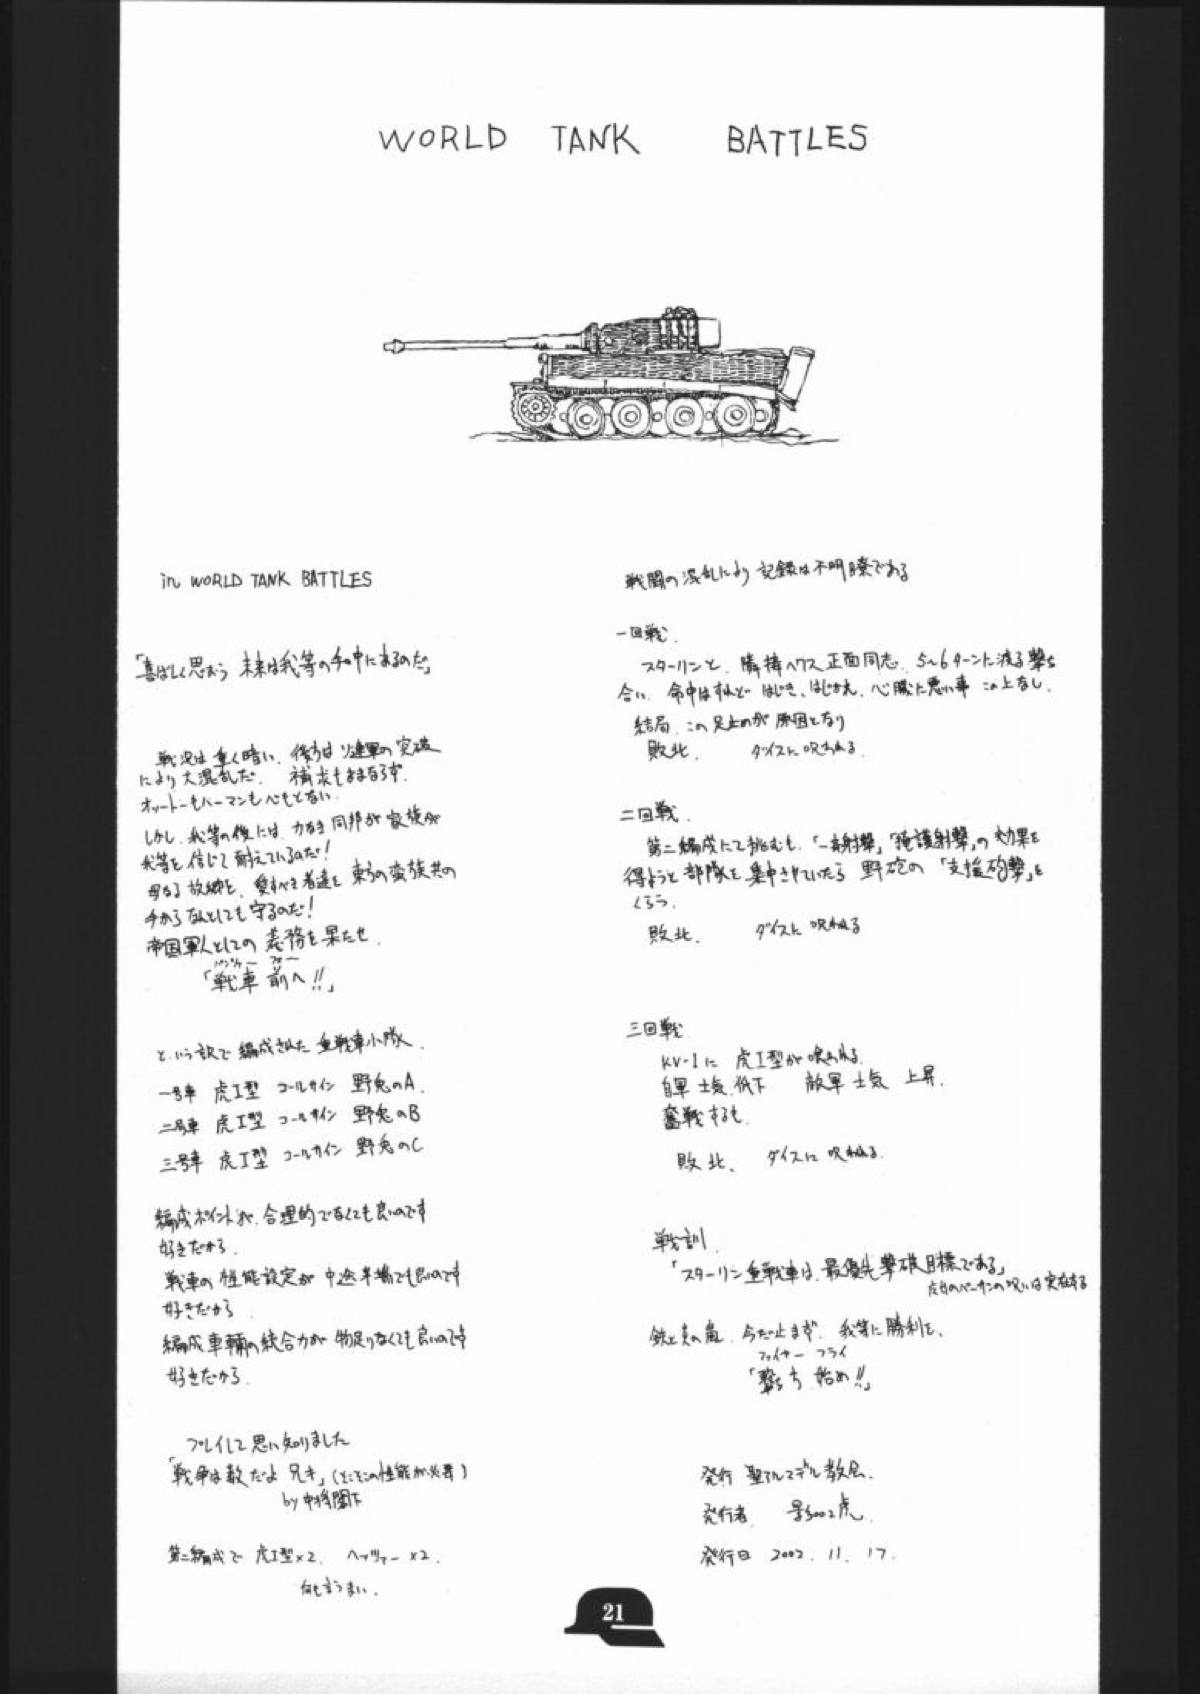 WORLD TANK BATTLES
in WORLD TANK BATTLES
「喜ばしく思おう 未来は我等の手中にあるのだ」
戦況は重く暗い、後方はソ連軍の突破
により大混乱だ、補充もままならず、
オットーもハーマンも心もとない、
しかし、我等の後には、力なき同邦が家族が
我等を信じて耐えているのだ!
母なる故郷と、愛すべき者達を東方の蛮族共の
手からなんとしても守るのだ!
帝国軍人としての義務を果たせ、
パンツァー フォー
「戦車 前へ!!」
という訳で編成された重戦車小隊、
一号車 虎I型 コールサイン 野兎のA、
二号車 虎I型 コールサイン 野兎のB
三号車 虎I型 コールサイン 野兎のC
編成ポイントが、合理的でなくても良いのです
好きだから、
戦車の性能設定が中途半端でも良いのです
好きだから、
編成車輛の統合力が物足りなくても良いのです
好きだから、
プレイして思い知りました
「戦争は数だよ 兄き」(そこそこの性能が必要)
by 中将閣下
第二編成で 虎I型×2、ヘッツァー×2、
何も言うまい、
戦闘の混乱により 記録は不明瞭である
一回戦、
スターリンと、隣接ヘクス正面同志、5~6ターンに渡る撃ち
合い、命中はすれど はじき、はじかれ、心臓に悪い事 この上なし、
結局、この足止めが原因となり
敗北、 ダイスに呪われる、
二回戦、
第二編成にて挑むも、「一斉射撃」「掩護射撃」の効果を
得ようと部隊を集中させていたら 野砲の「支援砲撃」を
くらう、
敗北、 ダイスに呪われる
三回戦
KV-1に 虎I型が喰われる、
自軍 士気 低下 敵軍 士気 上昇、
奮戦するも、
敗北、 ダイスに呪われる、
戦訓、
「スターリン重戦車は、最優先撃破目標である」
鉄と炎の嵐、今だ止まず、我等に勝利を、
ファイヤー フライ
「撃ち方 始め!!」
発行 聖アルマデル教会、
発行者
発行日 2002.11.17.
21